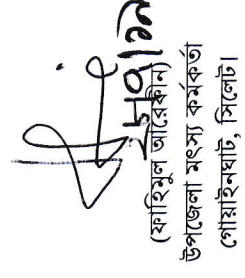 ২৮/৭/১৯
(ফাহিমুল আরেফীন)
উপজেলা মৎস্য কর্মকর্তা
গোয়াইনঘাট, সিলেট।